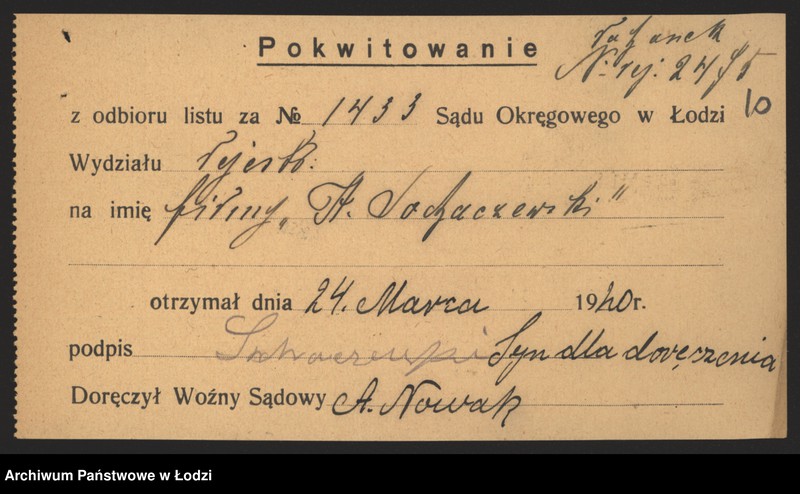 Pokwitowanie
N: rej: 24
10
z odbioru listu za № 1433 Sądu Okręgowego w Łodzi
Wydziału rejestr:
na imię firmy „ Sochaczewski"
otrzymał dnia 24. Marca 1940 r.
podpis Syn dla doręczenia
Doręczył Woźny Sądowy A. Nowak
Archiwum Państwowe w Łodzi